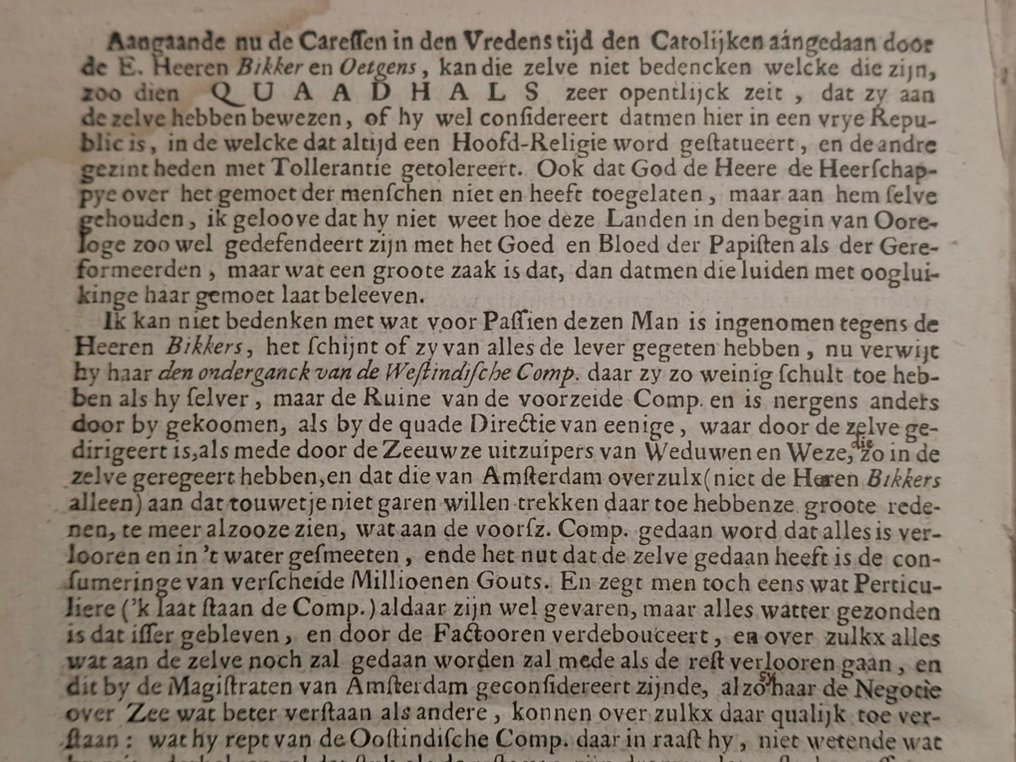 Aangaande nu de Caressen in den Vredens tijd den Catolijken aángedaan door
de E. Heeren Bikker en Oetgens, kan die zelve niet bedencken welcke die zijn,
zoo dien QUAADHALS zeer opentlijck zeit, dat zy aan
de zelve hebben bewezen, of hy wel considereert datmen hier in een vrye Repu-
blic is, in de welcke dat altijd een Hoofd-Religie word gestatueert, en de andre
gezint heden met Tollerantie getolereert. Ook dat God de Heere de Heerschap-
pye over het gemoet der menschen niet en heeft toegelaten, maar aan hem selve
gehouden, ik geloove dat hy niet weet hoe deze Landen in den begin van Oore-
loge zoo wel gedefendeert zijn met het Goed en Bloed der Papisten als der Gere-
formeerden, maar wat een groote zaak is dat, dan datmen die luiden met ooglui-
kinge haar gemoet laat beleeven.
Ik kan niet bedenken met wat voor Passien dezen Man is ingenomen tegens de
Heeren Bikkers, het schijnt of zy van alles de lever gegeten hebben, nu verwijt
hy haar den onderganck van de Westindische Comp. daar zy zo weinig schult toe heb-
ben als hy selver, maar de Ruine van de voorzeide Comp. en is nergens anders
door by gekoomen, als by de quade Directie van eenige, waar door de zelve ge-
dirigeert is, als mede door de Zeeuwze uitzuipers van Weduwen en Weze, die zo in de
zelve geregeert hebben, en dat die van Amsterdam overzulx (niet de Heren Bikkers
alleen) aan dat touwetje niet garen willen trekken daar toe hebbenze groote rede-
nen, te meer alzooze zien, wat aan de voorsz. Comp. gedaan word dat alles is ver-
looren en in 't water gesmeeten, ende het nut dat de zelve gedaan heeft is de con-
sumeringe van verscheide Millioenen Gouts. En zegt men toch eens wat Perticu-
liere ('k laat staan de Comp.) aldaar zijn wel gevaren, maar alles watter gezonden
is dat isser gebleven, en door de Factooren verdebouceert, en over zulkx alles
wat aan de zelve noch zal gedaan worden zal mede als de rest verlooren gaan, en
dit by de Magistraten van Amsterdam geconsidereert zijnde, alzo sy haar de Negotie
over Zee wat beter verstaan als andere, konnen over zulkx daar qualijk toe ver-
staan: wat hy rept van de Oostindische Comp. daar in raast hy, niet wetende wat